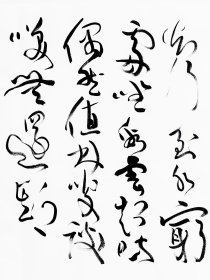 行到水窮
處坐看雲起時
偶然值林叟談
笑無還期